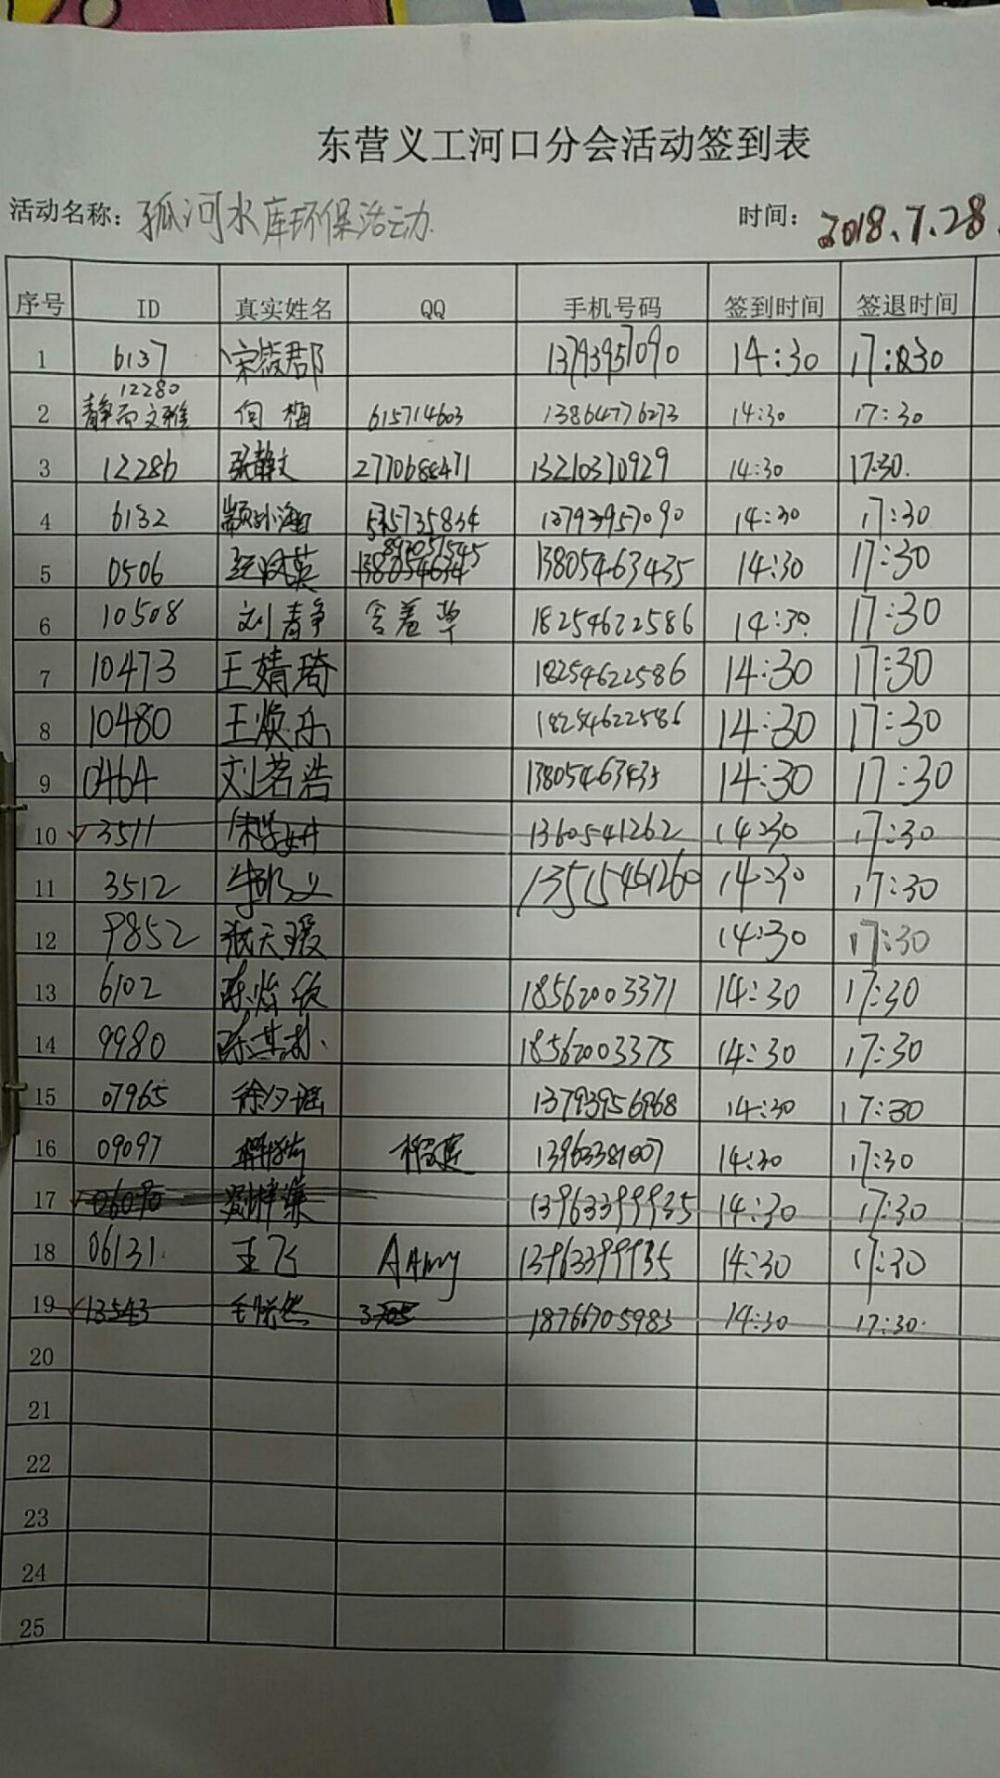 东营义工河口分会活动签到表
活动名称：孤河水库环保活动 时间：2018.7.28
序号 ID 真实姓名 QQ 手机号码 签到时间 签退时间
1 6137 13793957090 14:30 17:30
12280
2 静而文雅 何梅 615714603 13864776273 14:30 17:30
3 12286 张静文 2770688471 13210370929 14:30 17:30.
4 6132 13793957090 14:30 17:30
5 0506 13805463435 14:30 17:30
6 10508 刘青争 含羞草 18254622586 14:30 17:30
7 10473 王婧琦 18254622586 14:30 17:30
8 10480 王焕乐 18254622586 14:30 17:30
9 0464 刘茗浩 13805463435 14:30 17:30
10 3511 1360541262 14:30 17:30
11 3512 14:30 17:30
12 9852 张天瑷 14:30 17:30
13 6102 18562003371 14:30 17:30
14 9980 18562003375 14:30 17:30
15 07965 徐夕瑶 13793956968 14:30 17:30
16 09097 14:30 17:30
17 06090 13963399935 14:30 17:30
18 06131 王飞 13963399935 14:30 17:30
19 13543 18766705983 14:30 17:30
20
21
22
23
24
25